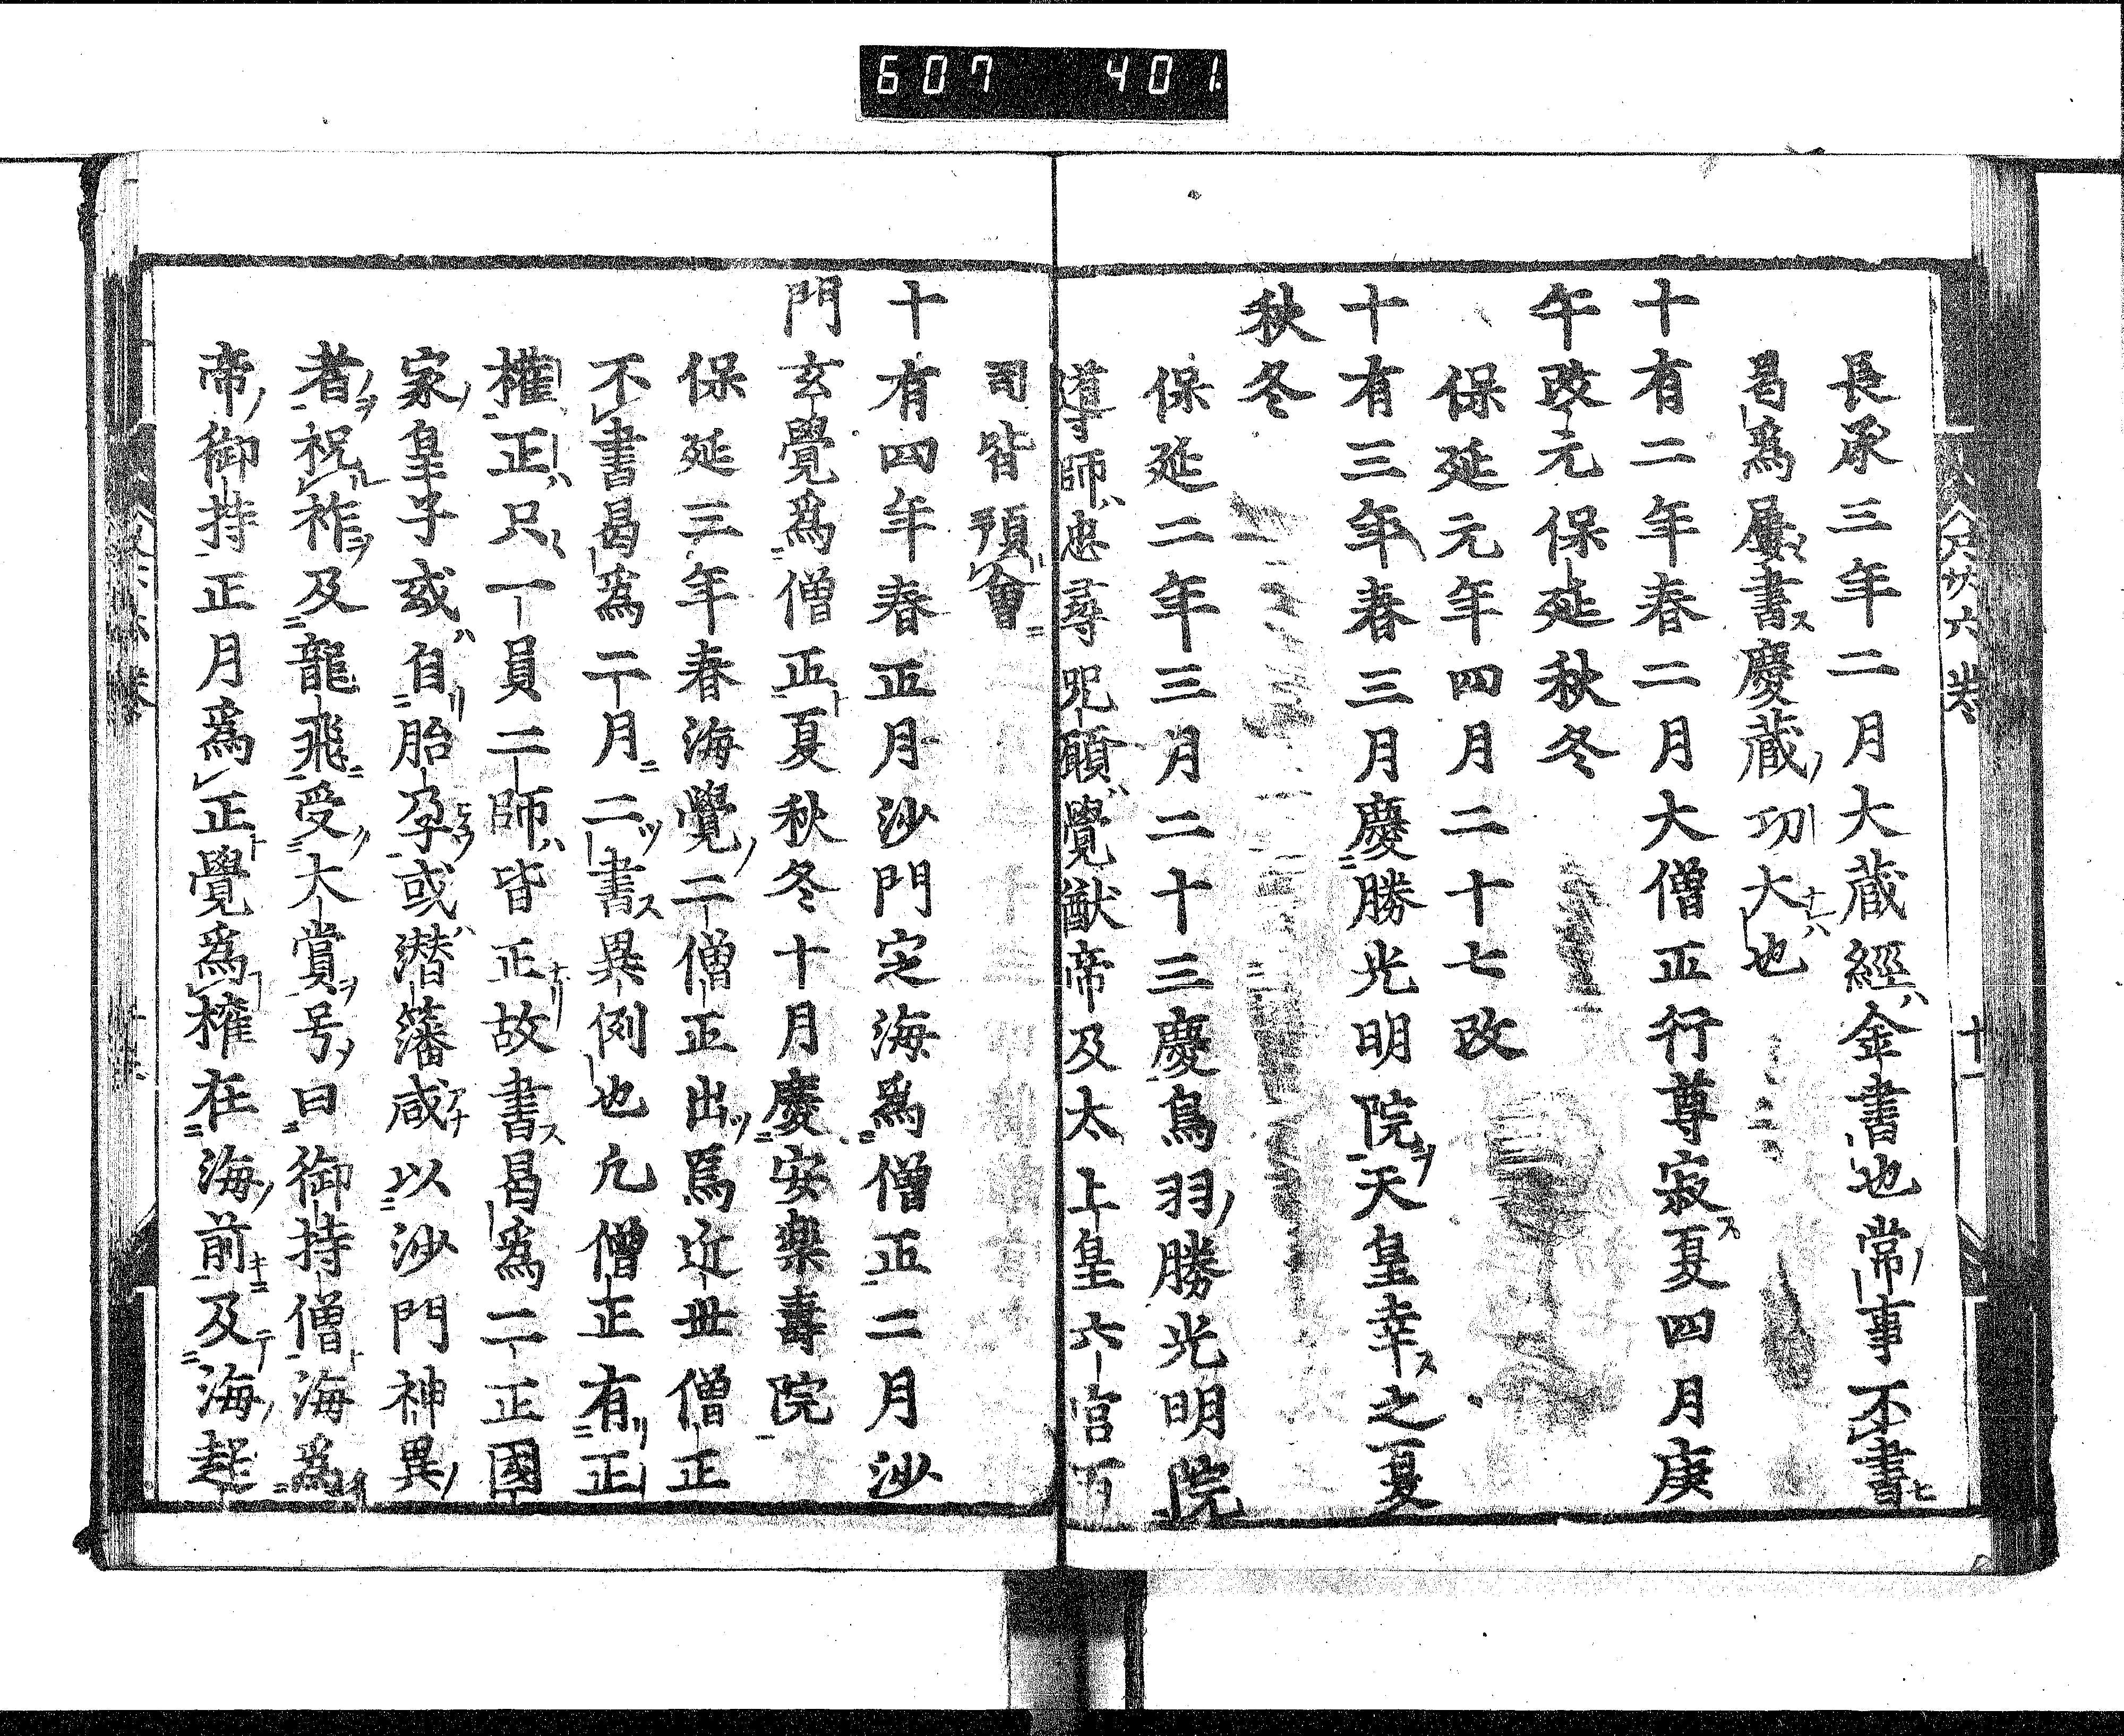 607 401
長承三年二月大蔵經金書也常事不書
曷爲屢書慶蔵功大也
十有二年春二月大僧正行尊寂夏四月庚
午改元保延秋冬
保延元年四月二十七改
十有三年春三月慶勝光明院天皇幸之夏
秋冬
保延二年三月二十三慶鳥羽勝光明院
導師忠尋呪願覺猷帝及太上皇六宮百
司皆預會
十有四年春正月沙門定海爲僧正二月沙
門玄覺爲僧正夏秋冬十月慶安樂壽院
保延三年春海覺二僧正出焉近世僧正
不書曷爲二月二書異例也凢僧正有正
權正只一員二師皆正故書曷爲二正國
家皇子或自胎孕或潛藩咸以沙門神異
者祝祚及龍飛受大賞号曰御持僧海爲
帝御持正月爲正覺爲權在海前及海起